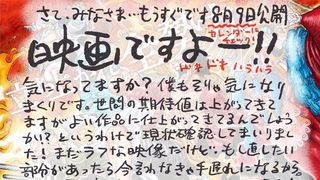 さて、みなさま…もうすぐです8月9日公開
映画ですよー!!
カレンダーに
チェック!
ドキドキ ハラハラ
気になってますか?僕もそりゃ気になり
まくりです。世間の期待値は上がってきて
ますがよい作品に仕上がってきてるんでしょう
か?というわけで現状確認してまいりまし
た!まだラフな映像だけど、もし直したい
部分があったら今言わなきゃ手遅れになるから。